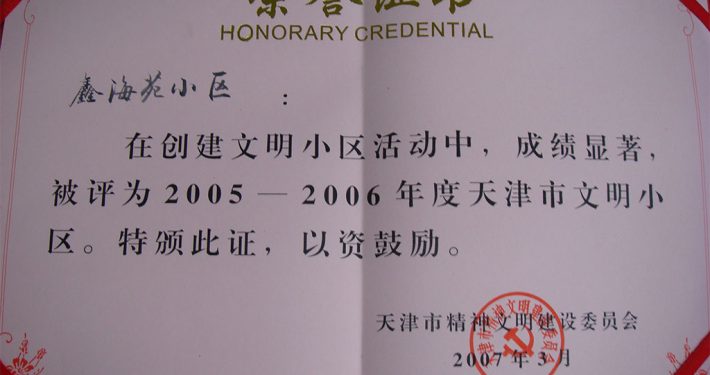 荣誉证书
HONORARY CREDENTIAL
鑫海苑小区 :
在创建文明小区活动中，成绩显著，
被评为2005—2006年度天津市文明小
区。特颁此证，以资鼓励。
天津市精神文明建设委员会
2007年3月